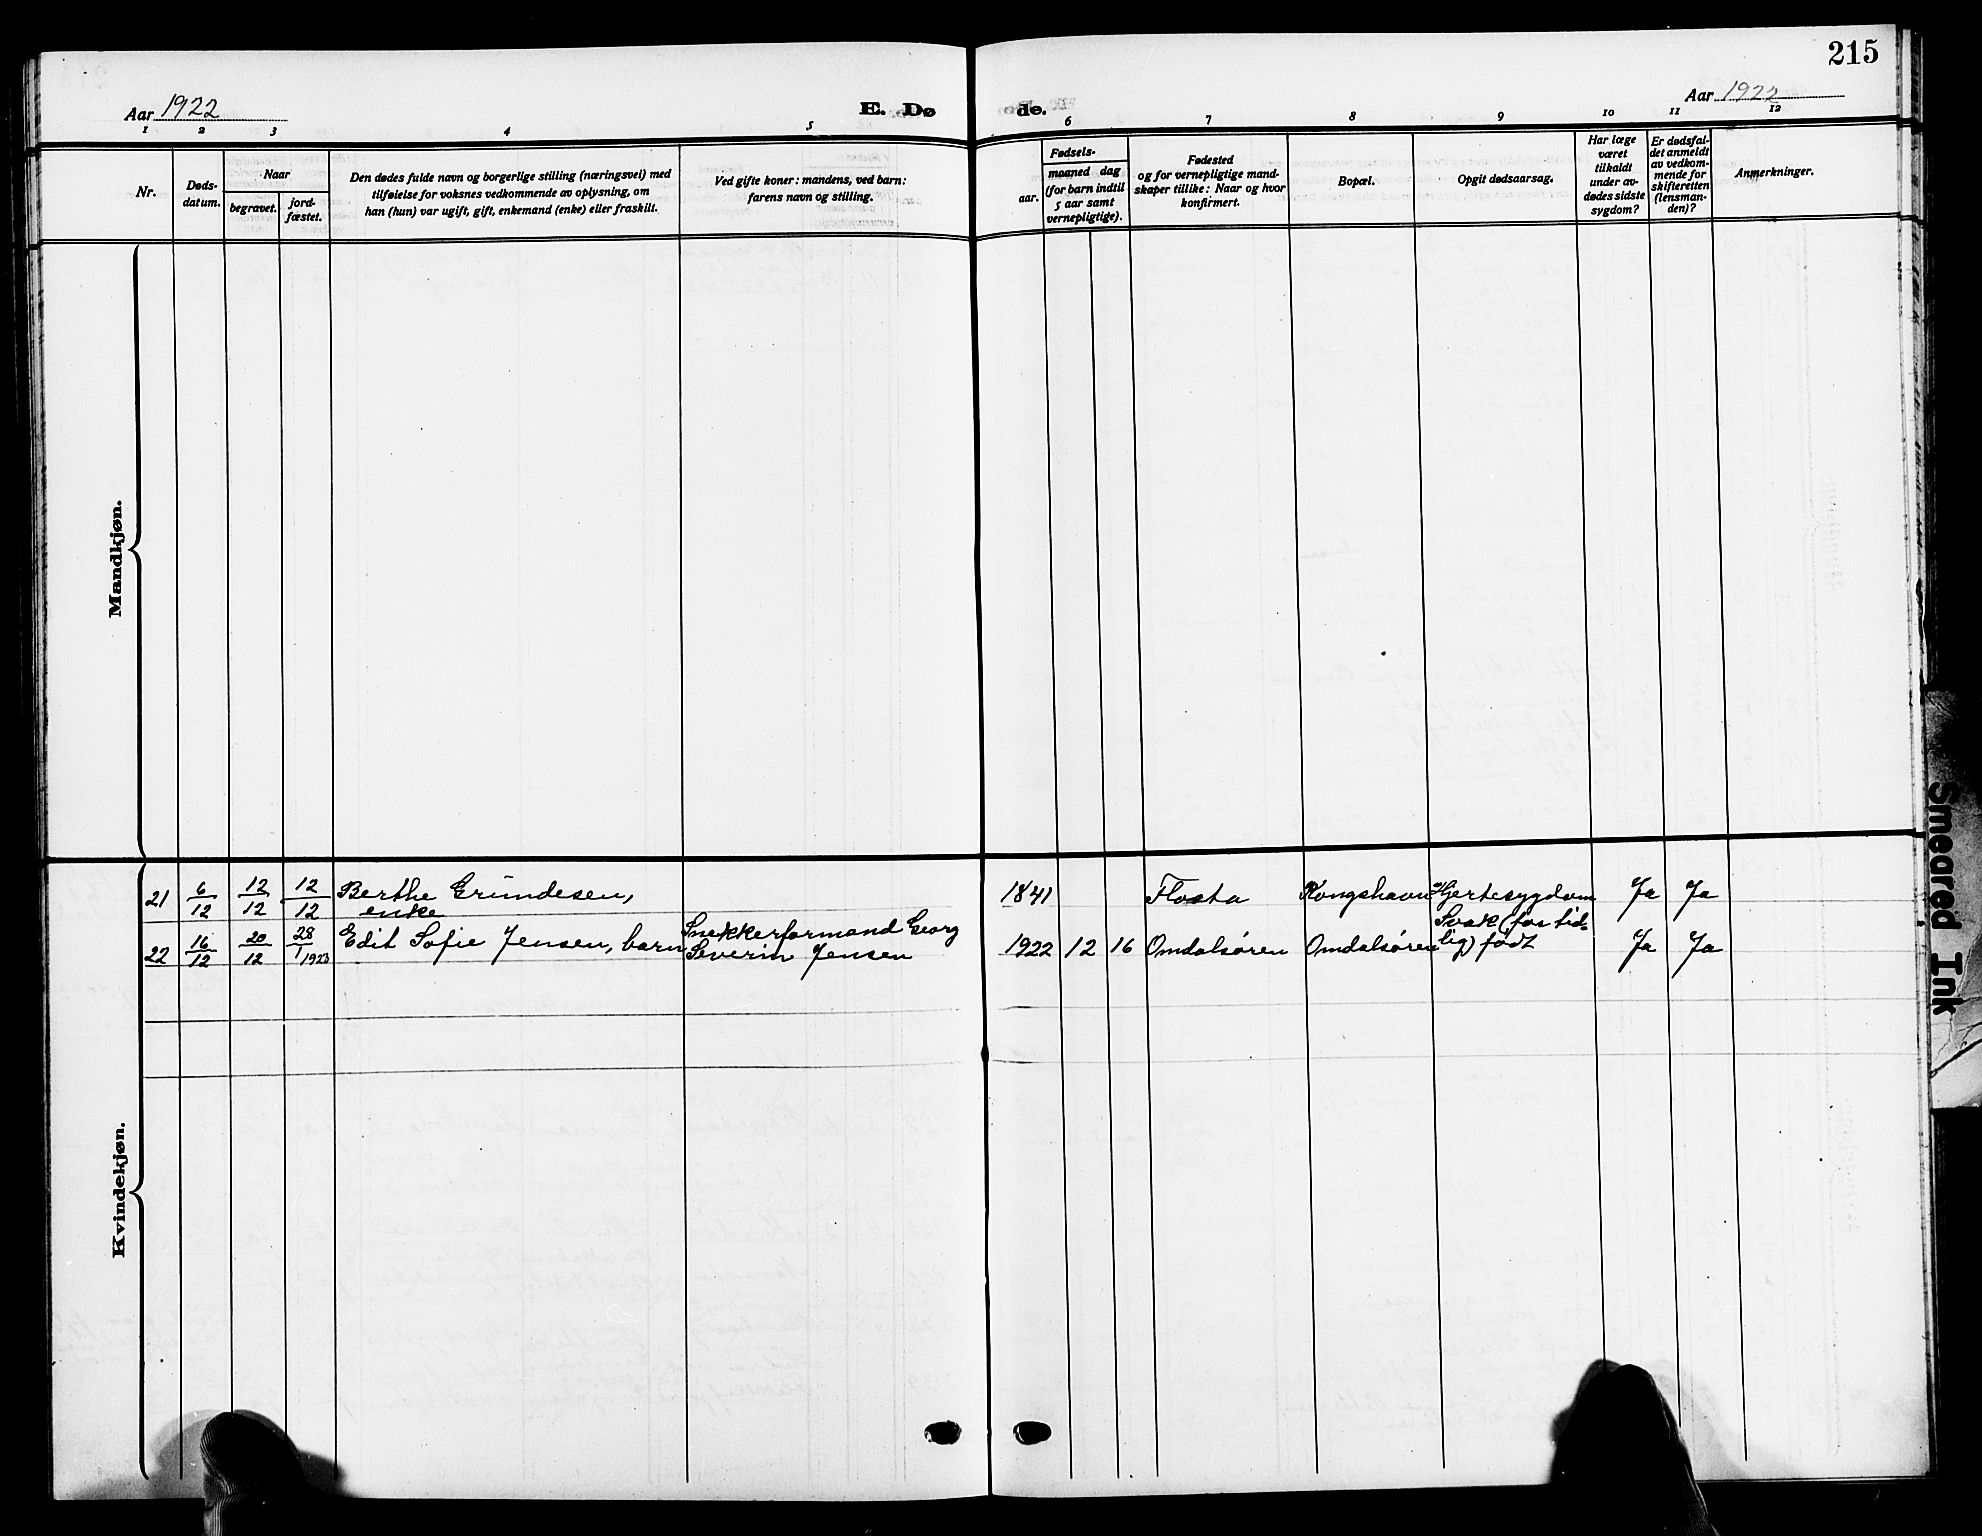 215
Aar 1922
E. Dø
de.
Aar 1922
1 2 3 4 5 6 7 8 9 10 11 12
Nr.
Døds-
datum.
Naar
begravet.
jord-
fæstet.
Den dødes fulde navn og borgerlige stilling (næringsvei) med
tilføielse for voksnes vedkommende av oplysning, om
han (hun) var ugift, gift, enkemand (enke) eller fraskilt.
Ved gifte koner: mandens, ved barn:
farens navn og stilling.
Fødsels-
aar.
maaned dag
(for barn indtil
5 aar samt
vernepligtige).
Fødested
og for vernepligtige mand-
skaper tillike: Naar og hvor
konfirmert.
Bopæl.
Opgit dødsaarsag.
Har læge
været
tilkaldt
under av-
dødes sidste
sygdom?
Er dødsfal-
det anmeldt
av vedkom-
mende for
skifteretten
(lensman-
den)?
Anmerkninger.
Mandkjøn.
21 6/12 12/12 12/12 Berthe Grundesen, 1841 Flosta Kongshavn Hjertesygdom Ja Ja
enke
22 16/12 20/12 28/1 1923 Edit Sofie Jensen, barn Snekkerformand Georg
Severin Jensen 1922 12 16 Omdalsøren Omdalsøren Svak (for tid-
lig) født Ja Ja
Kvindekjøn.
Smeared Ink